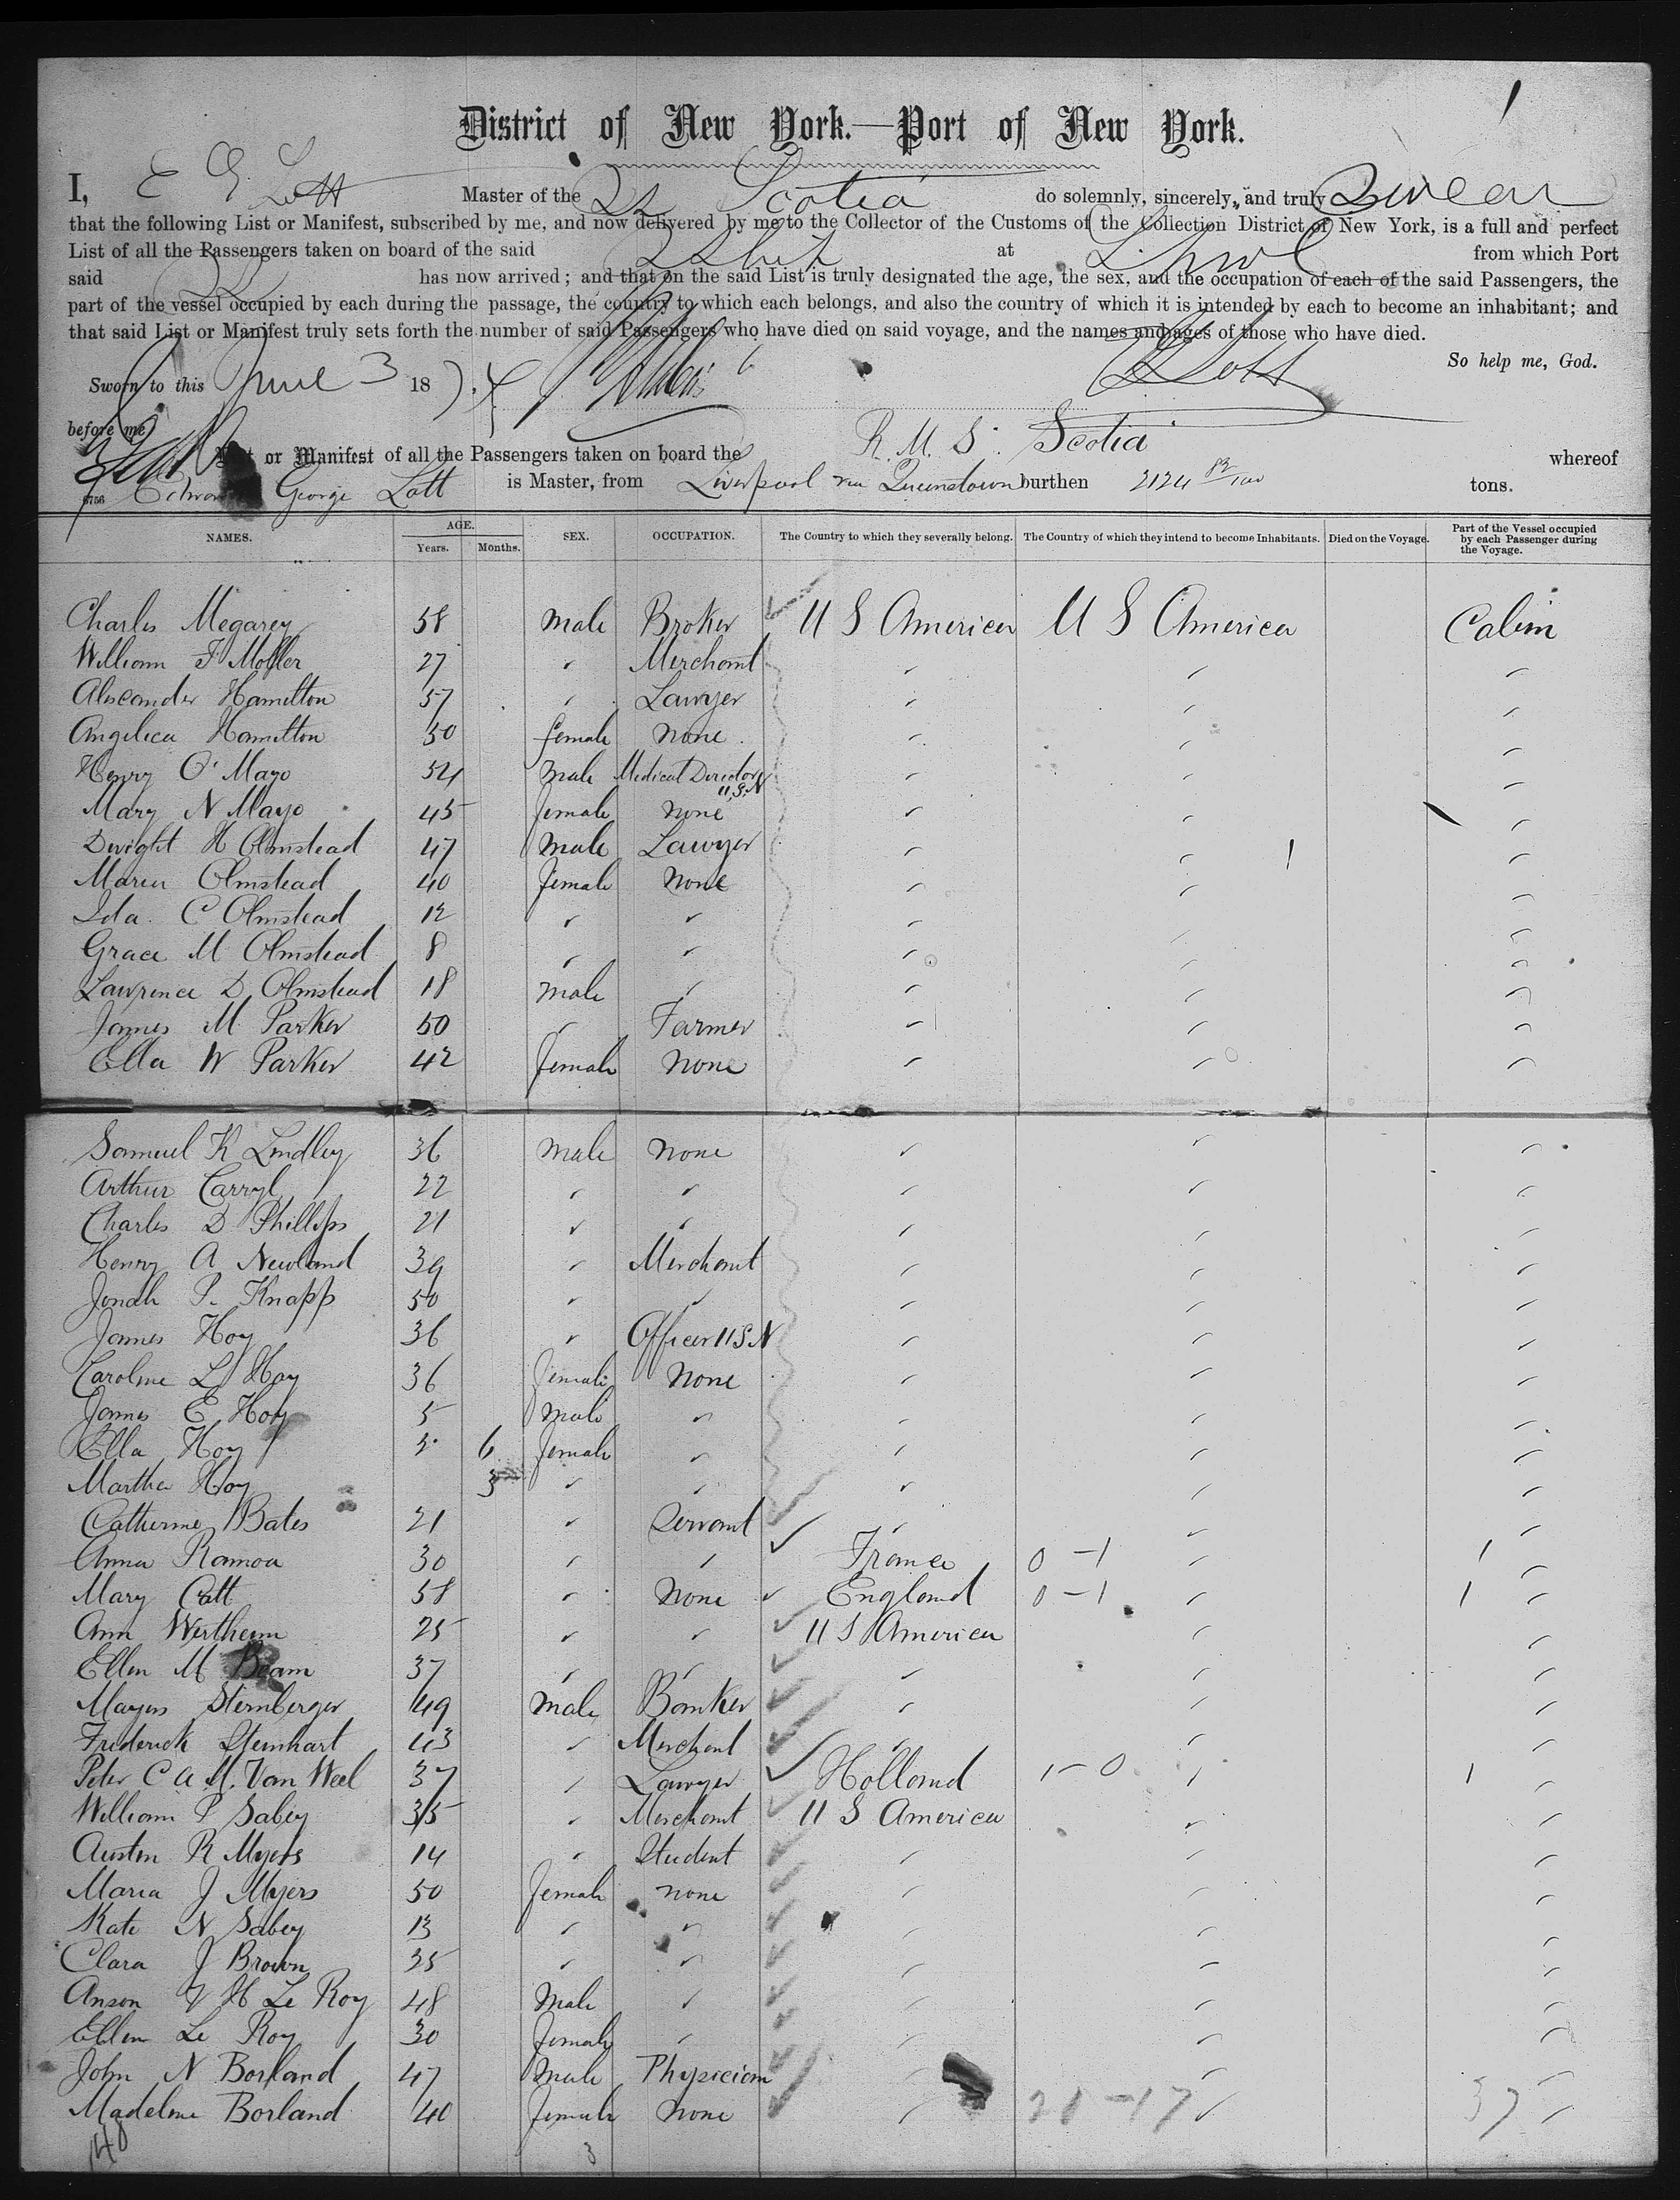 1
District of New York.—Port of New York.
I, E G Lott Master of the SS Scotia do solemnly, sincerely, and truly Swear
that the following List or Manifest, subscribed by me, and now delivered by me to the Collector of the Customs of the Collection District of New York, is a full and perfect
List of all the Passengers taken on board of the said at from which Port
said has now arrived; and that on the said List is truly designated the age, the sex, and the occupation of each of the said Passengers, the
part of the vessel occupied by each during the passage, the country to which each belongs, and also the country of which it is intended by each to become an inhabitant; and
that said List or Manifest truly sets forth the number of said Passengers who have died on said voyage, and the names and ages of those who have died.
So help me, God.
Sworn to this June 3 18 E G Lott
before me
List or Manifest of all the Passengers taken on board the R. M. S. Scotia whereof
George Lott is Master, from Liverpool via Queenstown burthen 2124 82/100 tons.
NAMES. AGE. Years. Months. SEX. OCCUPATION. The Country to which they severally belong. The Country of which they intend to become Inhabitants. Died on the Voyage. Part of the Vessel occupied by each Passenger during the Voyage.
Charles Megarey 58 male Broker U S America U S America Cabin
William F Moller 27 " Merchant " " "
Alexander Hamilton 57 " Lawyer " " "
Angelica Hamilton 50 female none " " "
Henry O' Mayo 54 male Medical Director U.S.N " " "
Mary N Mayo 45 female none " " "
Dwight H Olmstead 47 male Lawyer " " "
Maria Olmstead 40 female none " " "
Ida C Olmstead 12 " " " " "
Grace M Olmstead 8 " " " " "
Lawrence D Olmstead 18 male " " " "
James M Parker 50 " Farmer " " "
Ella W Parker 42 female none " " "
Samuel K Lindley 36 male none " " "
Arthur Carryl 22 " " " " "
Charles D Phillips 21 " " " " "
Henry A Newland 39 " Merchant " " "
Jonah P. Knapp 50 " " " " "
James Hoy 36 " Officer U S N " " "
Caroline L Hoy 36 female none " " "
James E Hoy 5 male " " " "
Ella Hoy 3 6 female " " " "
Martha Hoy 3 " " " " "
Catherine Bates 21 " Servant " " "
Anna Ramoa 30 " " France 0 - 1 " 1 "
Mary Catt 58 " none England 0 - 1 " 1 "
Ann Wertheim 25 " " U S America " "
Ellen M Beam 37 " " " " "
Mayers Sternberger 49 male Banker " " "
Frederick Steinhart 43 " Merchant " " "
Peter C A M. Van Weel 37 " Lawyer Holland 1 - 0 " 1 "
William P Sabey 35 " Merchant U S America " "
Austin R Myers 14 " Student " " "
Maria J Myers 50 female none " " "
Kate N Sabey 13 " " " " "
Clara J Brown 25 " " " " "
Anson V H Le Roy 48 male " " " "
Ellen Le Roy 30 female " " " "
John N Borland 47 male Physician " " "
Madeline Borland 40 female none " 20 - 17 " 37 "
3